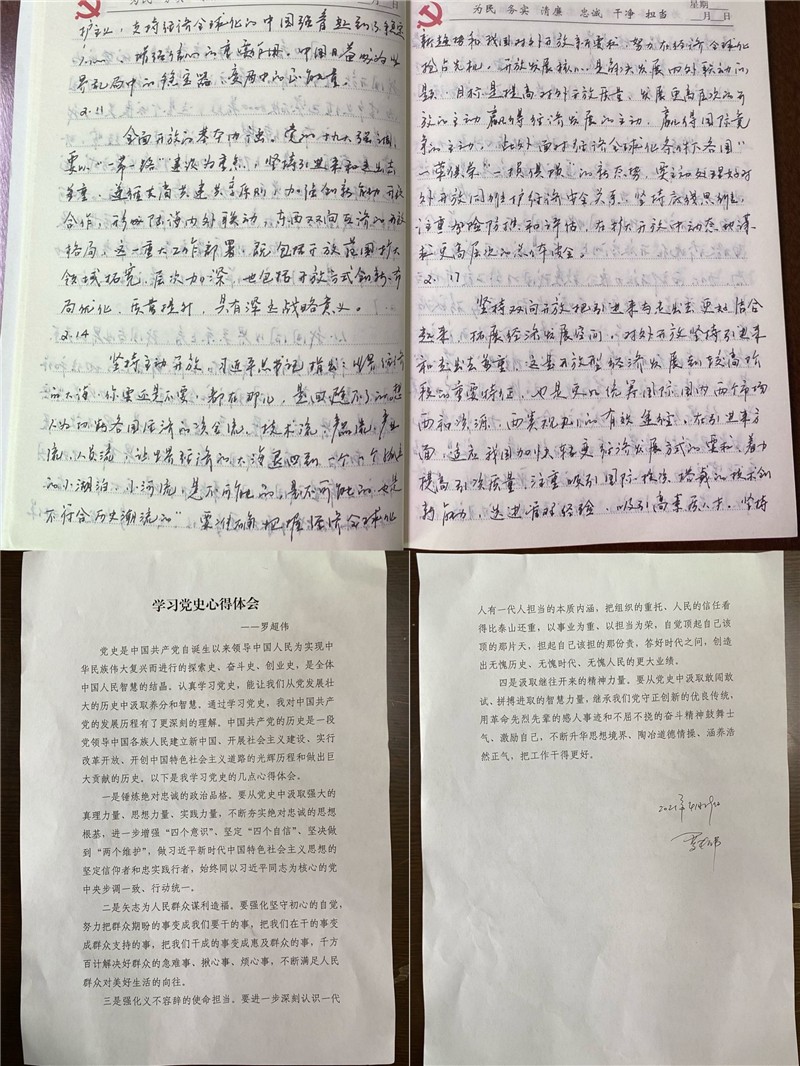 为民 务实 清廉 忠诚 干净 担当
月 日
护主义,支持经济全球化的中国强音
界乱局中的稳定器、变局中的正能量。
2.21
全面开放的基本内涵。党的十九大强调,
要以“一带一路”建设为重点,坚持引进来和走出去
并重,遵循共商共建共享原则,加强创新能力开放
合作,形成陆海内外联动、东西双向互济的开放
格局。这一重大工作部署,既包括开放范围扩大、
领域拓宽、层次加深,也包括开放方式创新、布
局优化、质量提升,具有深远战略意义。
2.14
坚持主动开放。习近平总书记指出:世界经济
的大海,你要还是不要,都在那儿,是回避不了的。想
人为切断各国经济的资金流、技术流、产品流、产业
流、人员流,让世界经济的大海退回到一个一个孤立
的小湖泊、小河流,是不可能的,是不可能的,也是
不符合历史潮流的”要准确把握经济全球化
为民 务实 清廉 忠诚 干净 担当
星期
月 日
新趋势和我国对外开放新要求,努力在经济全球化
抢占先机。开放发展核心是解决发展内外联动问
题,目标是提高对外开放质量、发展更高层次的开
放的主动赢得经济发展的主动、赢得国际竞
争的主动。此外面对经济全球化条件下各国“
一荣俱荣”“一损俱损”的新态势,要主动处理好对
外开放同维护经济安全关系,坚持底线思维,
注重风险防范和评估,在扩大开放中动态地谋
求更高层次的总体安全。
2.17
坚持双向开放,把引进来与走出去更好结合
起来,拓展经济发展空间。对外开放坚持引进来
和走出去并重,这是开放型经济发展到较高阶
段的重要特征,也是更好统筹国际国内两个市场
两种资源、两类规则的有效途径。在引进来方
面,适应我国加快转变经济发展方式的要求,着力
提高引资质量,注重吸引国际投资搭载的技术创
新能力、先进管理经验,吸引高素质人才。坚持
学习党史心得体会
——罗超伟
党史是中国共产党自诞生以来领导中国人民为实现中
华民族伟大复兴而进行的探索史、奋斗史、创业史,是全体
中国人民智慧的结晶。认真学习党史,能让我们从党发展壮
大的历史中汲取养分和智慧。通过学习党史,我对中国共产
党的发展历程有了更深刻的理解。中国共产党的历史是一段
党领导中国各族人民建立新中国、开展社会主义建设、实行
改革开放、开创中国特色社会主义道路的光辉历程和做出巨
大贡献的历史。以下是我学习党史的几点心得体会。
一是锤炼绝对忠诚的政治品格。要从党史中汲取强大的
真理力量、思想力量、实践力量,不断夯实绝对忠诚的思想
根基,进一步增强“四个意识”、坚定“四个自信”、坚决做
到“两个维护”,做习近平新时代中国特色社会主义思想的
坚定信仰者和忠实践行者,始终同以习近平同志为核心的党
中央步调一致、行动统一。
二是矢志为人民群众谋利造福。要强化坚守初心的自觉,
努力把群众期盼的事变成我们要干的事,把我们在干的事变
成群众支持的事,把我们干成的事变成惠及群众的事,千方
百计解决好群众的急难事、揪心事、烦心事,不断满足人民
群众对美好生活的向往。
三是强化义不容辞的使命担当。要进一步深刻认识一代
人有一代人担当的本质内涵,把组织的重托,人民的信任看
得比泰山还重,以事业为重、以担当为荣,自觉顶起自己该
顶的那片天,担起自己该担的那份责,答好时代之问,创造
出无愧历史、无愧时代、无愧人民的更大业绩。
四是汲取继往开来的精神力量。要从党史中汲取敢闯敢
试、拼搏进取的智慧力量,继承我们党守正创新的优良传统,
用革命先烈先辈的感人事迹和不屈不挠的奋斗精神鼓舞士
气、激励自己,不断升华思想境界、陶冶道德情操、涵养浩
然正气,把工作干得更好。
2021年4月29日
罗超伟